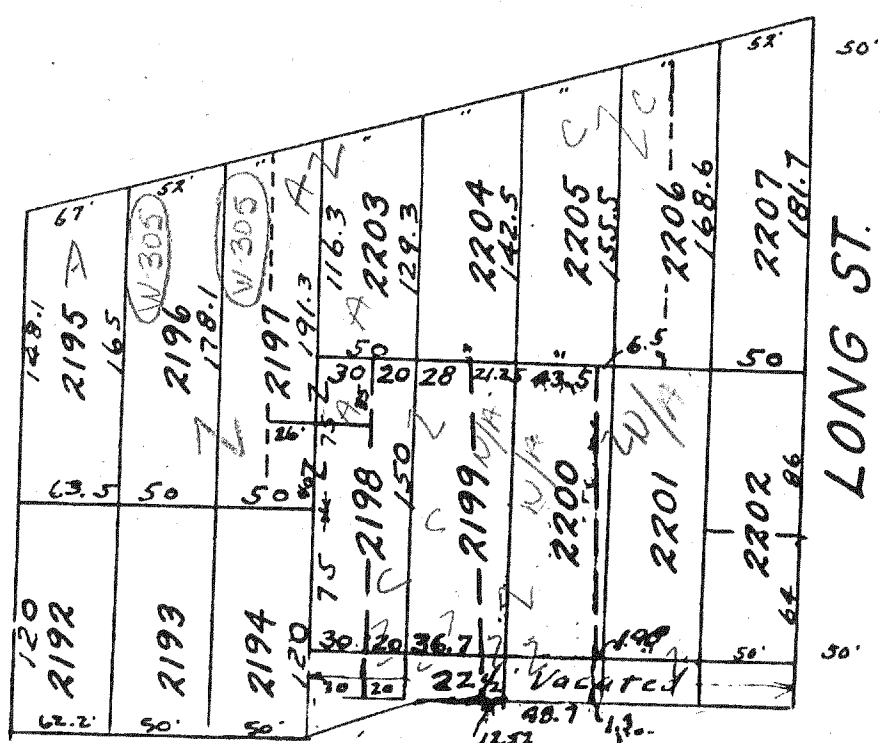 52'
50'
67'
52'
"
"
"
"
"
W 305
W 305
AZ
C
Z
C
148.1
2195
165
2196
178.1
2197
191.3
116.3
2203
129.3
2204
142.5
2205
155.5
2206
168.6
2207
181.7
LONG ST.
A
50
"
"
6.5
50
30
20
28
21.25
43.5
26'
75
A
Z
Z
63.5
50
50
75
2198
150
C
C
2199
N/A
N/A
2200
N/A
2201
2202
86
64
120
2192
2193
2194
120
30
20
36.7
50'
50'
30
20
22½
Vacated
62.2'
50'
50'
48.7
12.52
1.3